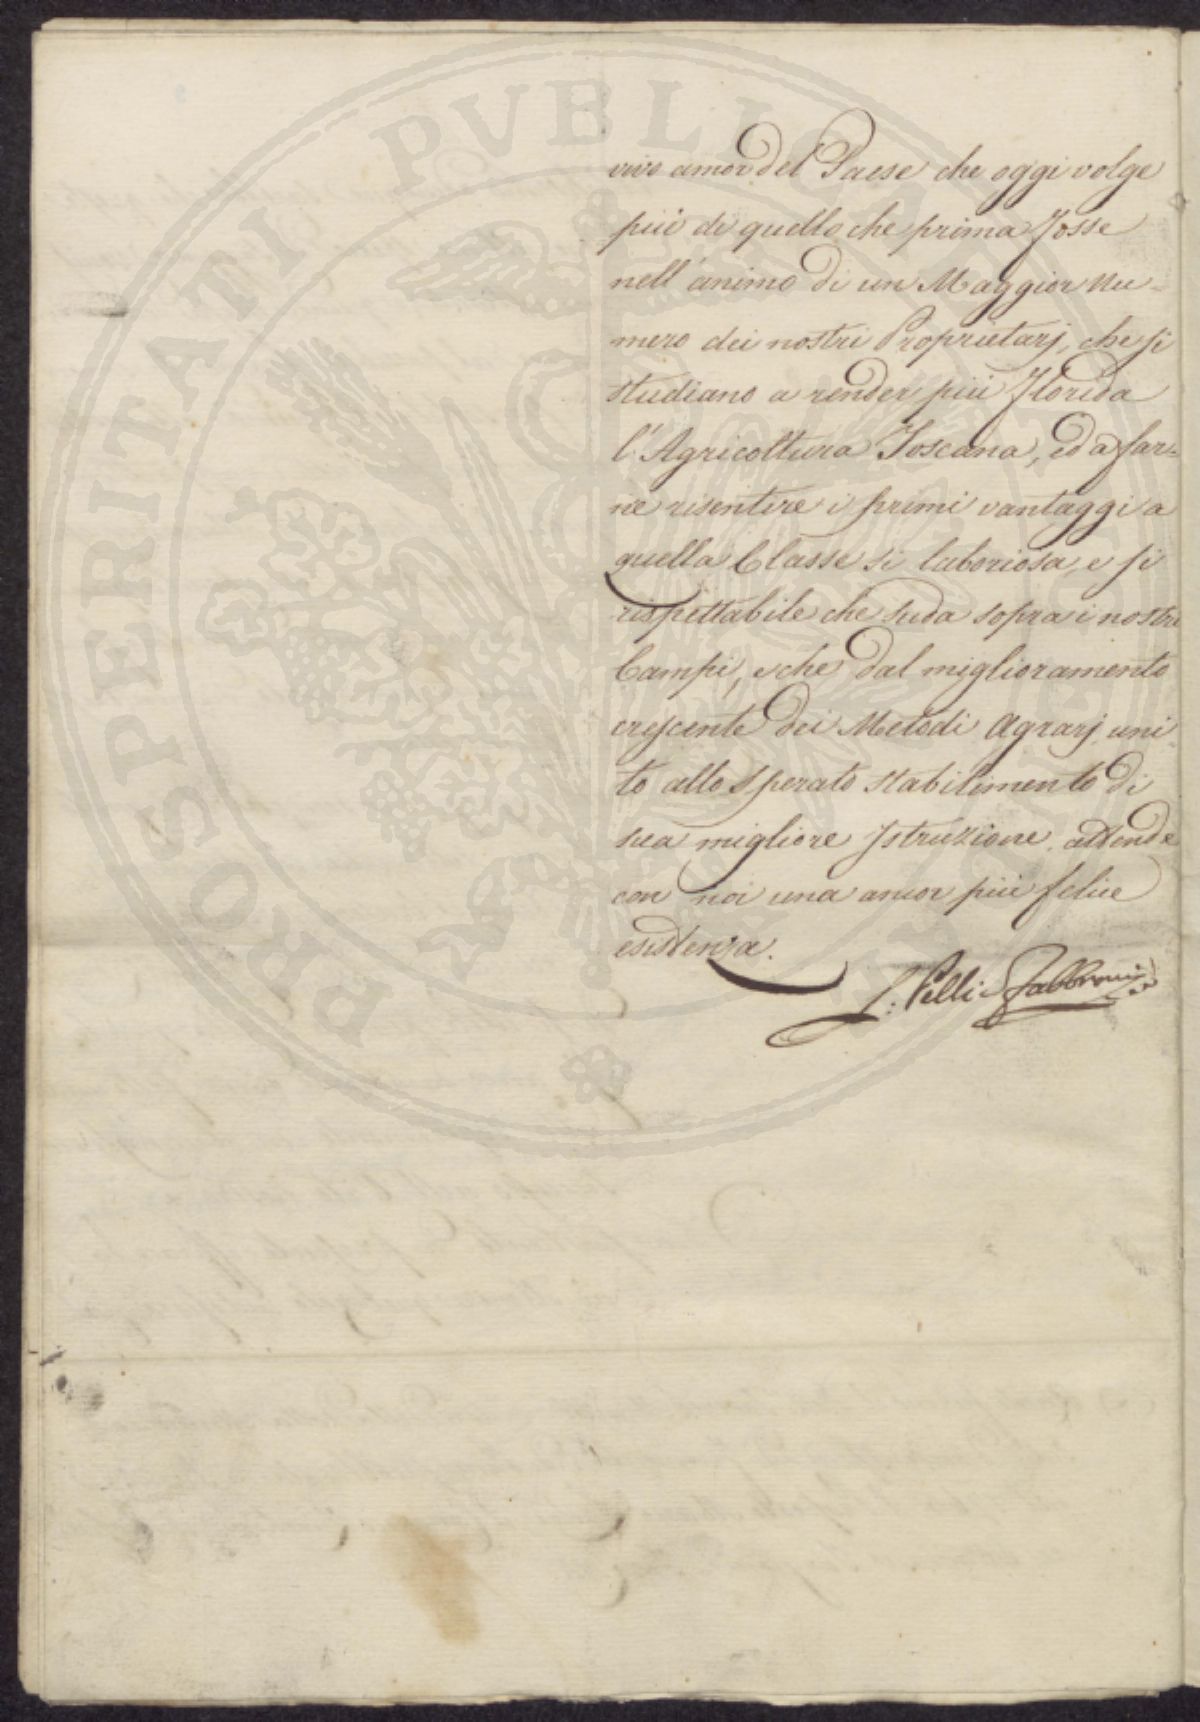 vivo amor del Paese che oggi volge
più di quello che prima fosse
nell'animo di un Maggior Nu-
mero dei nostri Proprietarj, che si
studiano a render più florida
l'Agricoltura Toscana, ed a far-
ne risentire i primi vantaggi a
quella Classe si laboriosa, e si
rispettabile che suda sopra i nostri
Campi, e che dal miglioramento
crescente dei Metodi Agrarj uni
to allo Sperato stabilimento di
sua migliore Istruzione, attende
con noi una ancor più felice
esistenza.
L: Pelli Fabbroni
PROSPERITATI PVBLICAE